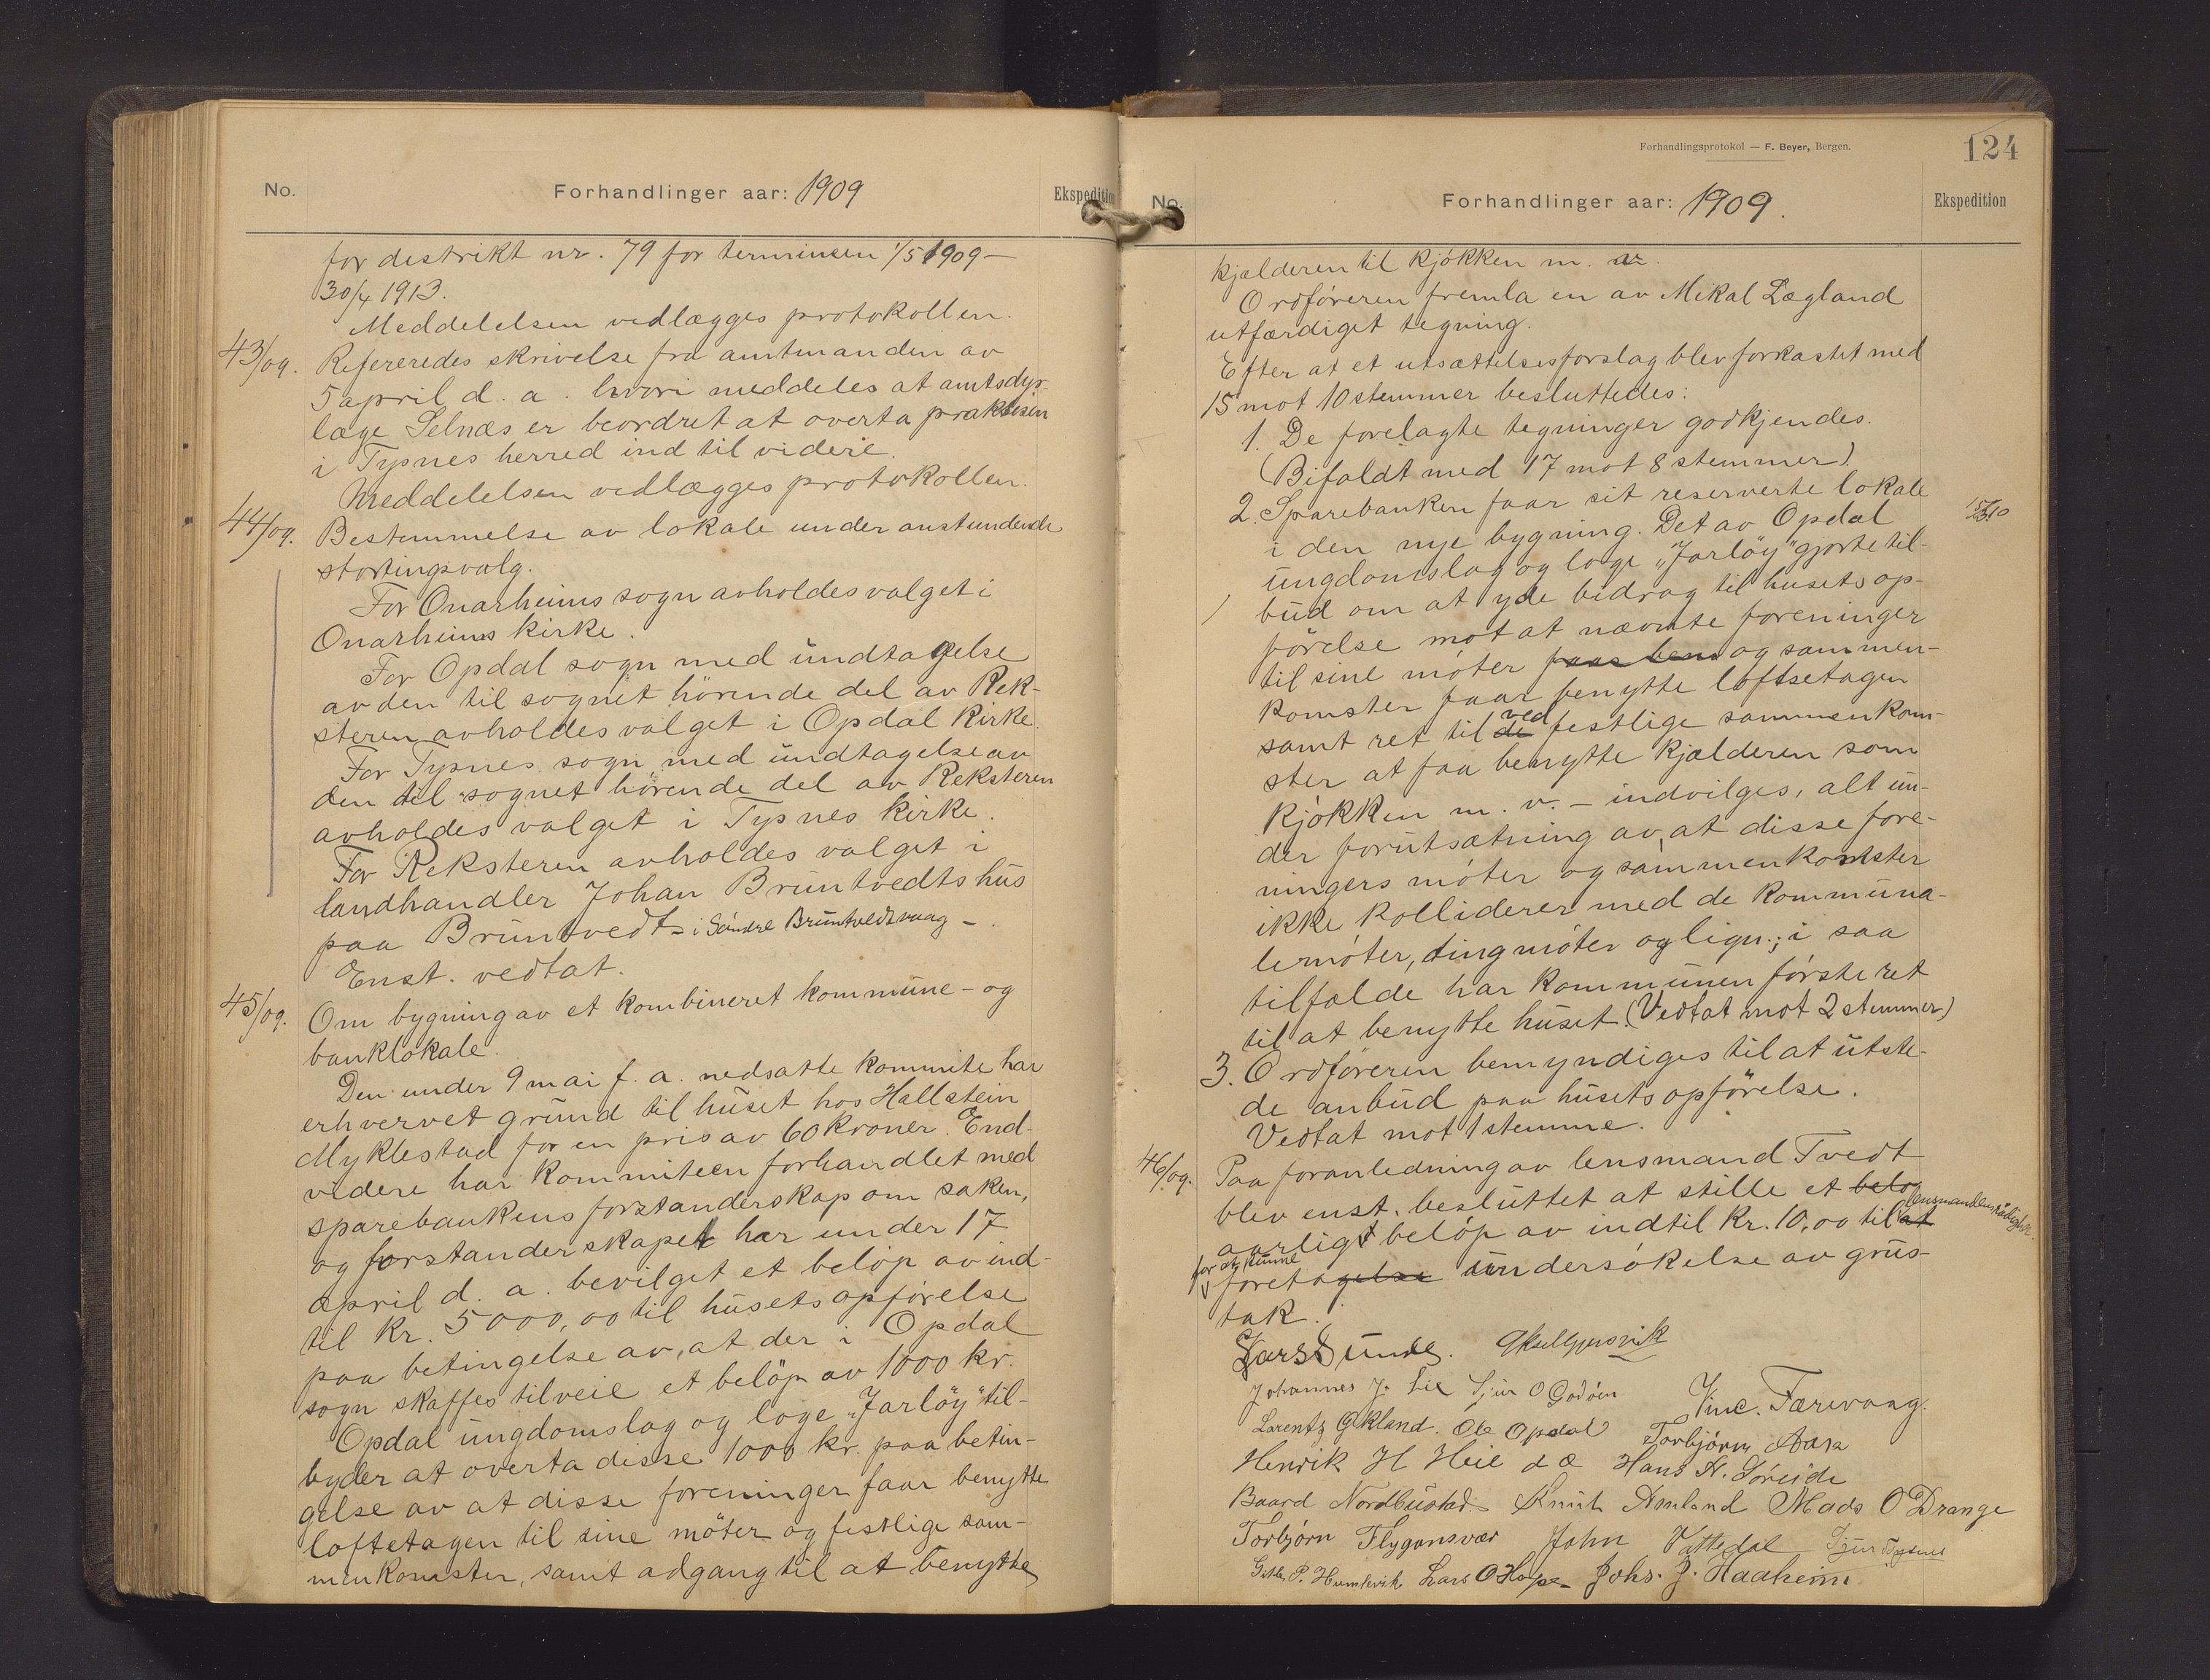 No.
Forhandlinger aar: 1909
Ekspedition
for destrikt nr. 79 for terminen 1/5 1909 –
30/4 1913.
Meddelelsen vedlægges protokollen.
43/09. Refereredes skrivelse fra amtmanden av
5 april d. a. hvori meddeles at amtsdyr-
læge Selnæs er beordret at overta praksisen
i Tysnes herred ind til videre.
Meddelelsen vedlægges protokollen.
44/09. Bestemmelse av lokale under anstundende
stortingsvalg.
For Onarheims sogn avholdes valget i
Onarheims kirke.
For Opdal sogn med undtagelse
av den til sognet hörende del av Rek-
steren avholdes valget i Opdal kirke.
For Tysnes sogn med undtagelse av
den til sognet hörende del av Reksteren
avholdes valget i Tysnes kirke.
For Reksteren avholdes valget i
landhandler Johan Bruntvedts hus
paa Bruntvedt – i Söndre Bruntvedtvaag –.
Enst. vedtat.
45/09. Om bygning av et kombineret kommune- og
banklokale.
Den under 9 mai f. a. nedsatte kommite har
erhvervet grund til huset hos Hallstein
Myklestad for en pris av 60 kroner. End-
videre har kommiteen forhandlet med
sparebankens forstanderskap om saken,
og forstanderskapet har under 17
april d. a. bevilget et belöp av ind-
til kr. 5000,00 til husets opförelse
paa betingelse av, at der i Opdal
sogn skaffes tilveie et belöp av 1000 kr.
Opdal ungdomslag og loge „Jarlöy" til-
byder at overta disse 1000 kr. paa betin-
gelse av at disse foreninger faar benytte
loftetagen til sine möter og festlige sam-
menkomster, samt adgang til at benytte
Forhandlingsprotokol — F. Beyer, Bergen.
124
No.
Forhandlinger aar: 1909.
Ekspedition
kjælderen til kjökken m. v.
Ordföreren fremla en av Mikal Lægland
utfærdiget tegning.
Efter at et utsættelsesforslag blev forkastet med
15 mot 10 stemmer besluttedes:
1. De forelagte tegninger godkjendes.
(Bifaldt med 17 mot 8 stemmer).
2. Sparebanken faar sit reserverte lokale
i den nye bygning. Det av Opdal
ungdomslag og loge „Jarlöy" gjorte til-
bud om at yde bidrag til husets op-
förelse mot at nævnte foreninger
til sine möter faar ben og sammen-
komster faar benytte loftsetagen
samt ret til de ved festlige sammenkom-
ster at faa benytte kjælderen som
kjökken m. v. – indvilges, alt un-
der forutsætning av, at disse fore-
ningers möter og sammenkomster
ikke kolliderer med de kommuna-
le möter, tingmöter og lign.; i saa
tilfælde har kommunen förste ret
til at benytte huset. (Vedtat mot 2 stemmer)
3. Ordföreren bemyndiges til at utste-
de anbud paa husets opförelse.
Vedtat mot 1 stemme.
46/09. Paa foranledning av lensmand Tvedt
blev enst. besluttet at stille et belö
aarligt belöp av indtil kr. 10,00 til at lensmandens rådighet
for at kunne foretagelse undersökelse av grus-
tak.
Lars Sunde.
Johannes J. Lie Sjur O Godöen Vinc. Færevaag.
Lorentz Økland. Ole Opdal Torbjörn Aara
Henrik H Heie d æ Hans N. Söreide
Baard Nordbustad. Knut Amland Mads O Drange
Torbjörn Flygansvær John Vattedal Sjur Tysnes
Gitle P. Humlevik Lars O Hope Johs. J. Haaheim